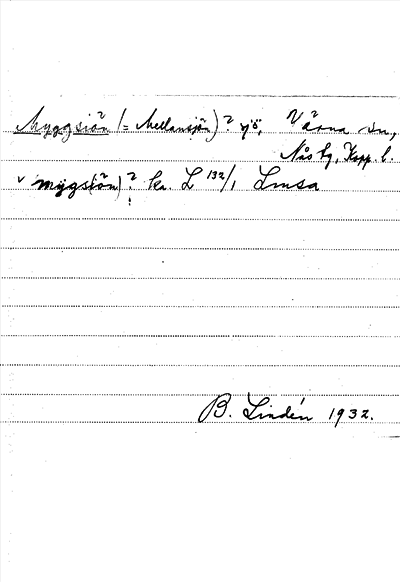 Myggsjön (= Mellansjön)? sjö, Värna sn,
Nås hg, Kopp. l.
v mygs(jön)? ka. L 132/1 Limsa
B. Lindén 1932.